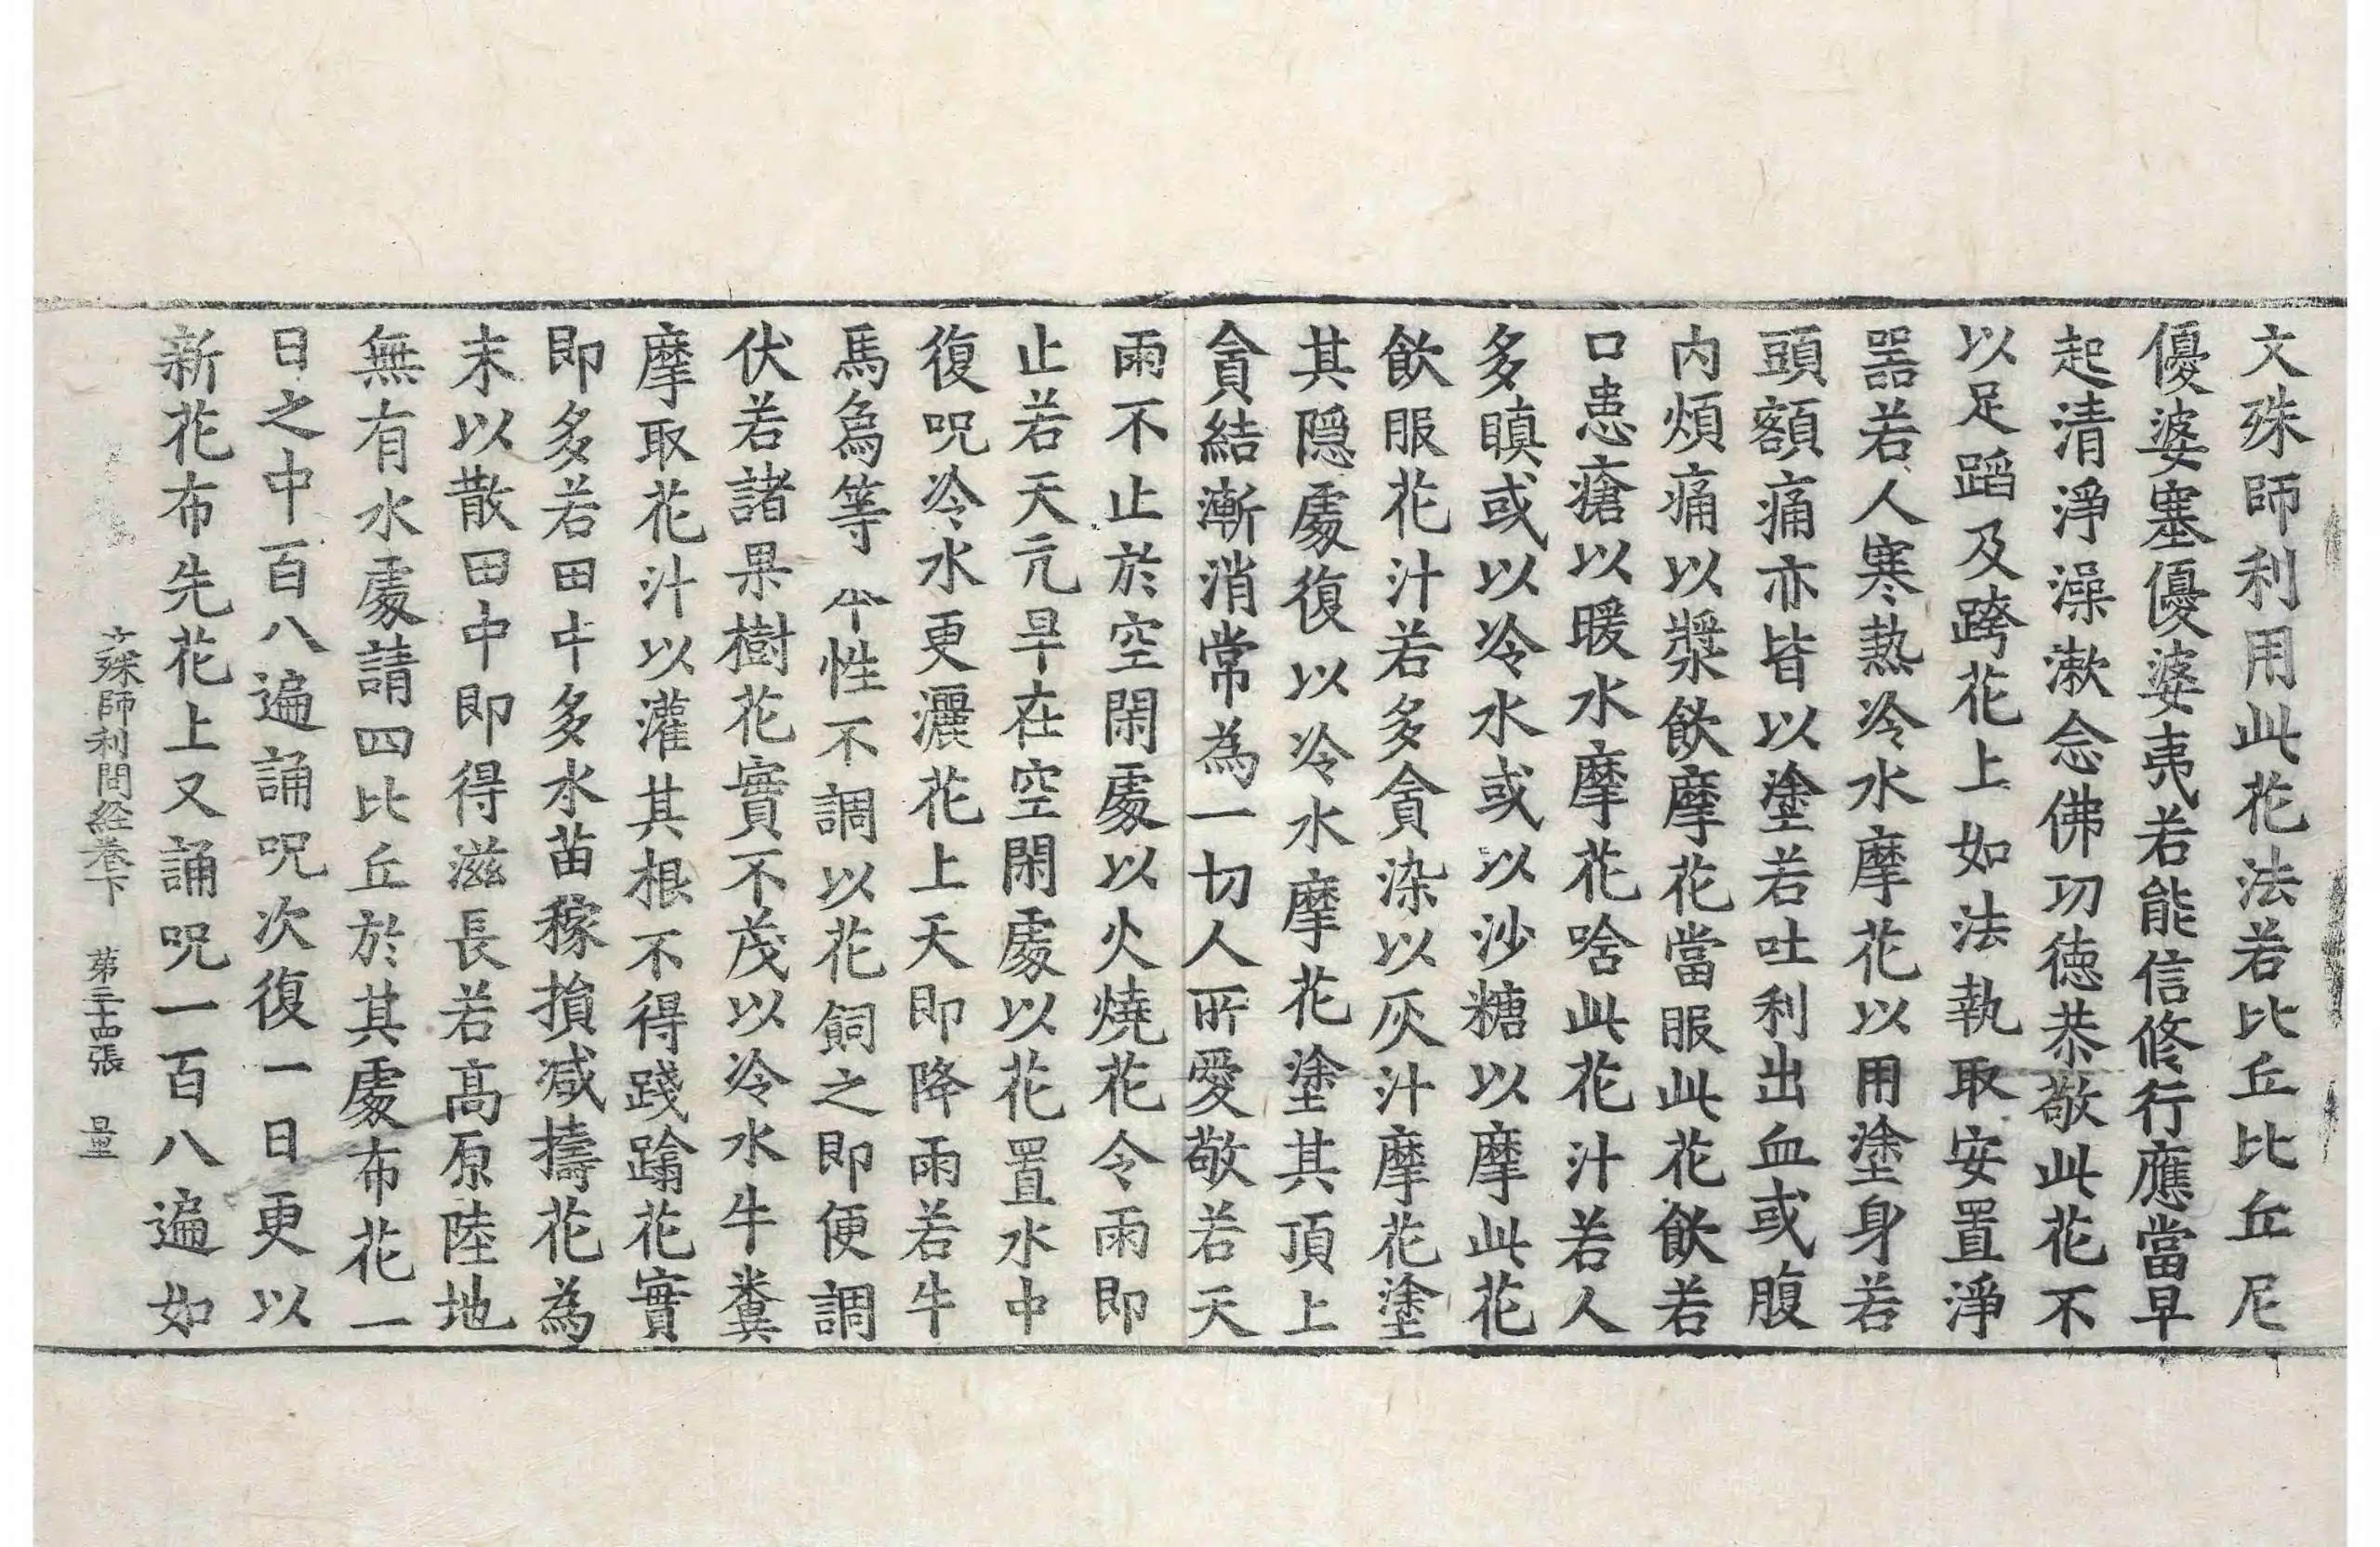 文殊師利用此花法若比丘比丘尼
優婆塞優婆夷若能信修行應當早
起清淨澡漱念佛功德恭敬此花不
以足蹈及跨花上如法執取安置淨
器若人寒熱冷水摩花以用塗身若
頭額痛亦皆以塗若吐利出血或腹
内煩痛以漿飲摩花當服此花飲若
口患瘡以暖水摩花啥此花汁若人
多瞋或以冷水或以沙糖以摩此花
飲服花汁若多貪染以灰汁摩花塗
其隱處復以冷水摩花塗其頂上
貪結漸消常為一切人所愛敬若天
雨不止於空閑處以火燒花令雨即
止若天亢旱在空閑處以花置水中
復呪冷水更灑花上天即降雨若牛
馬為等 性不調以花飼之即便調
伏若諸果樹花實不茂以冷水牛糞
摩取花汁以灌其根不得踐蹹花實
即多若田中多水苗稼損减擣花為
末以散田中即得滋長若髙原陸地
無有水處請四比丘於其處布花一
日之中百八遍誦呪次復一日更以
新花布先花上又誦呪一百八遍如
文殊師利問経卷下 第三十四張 量